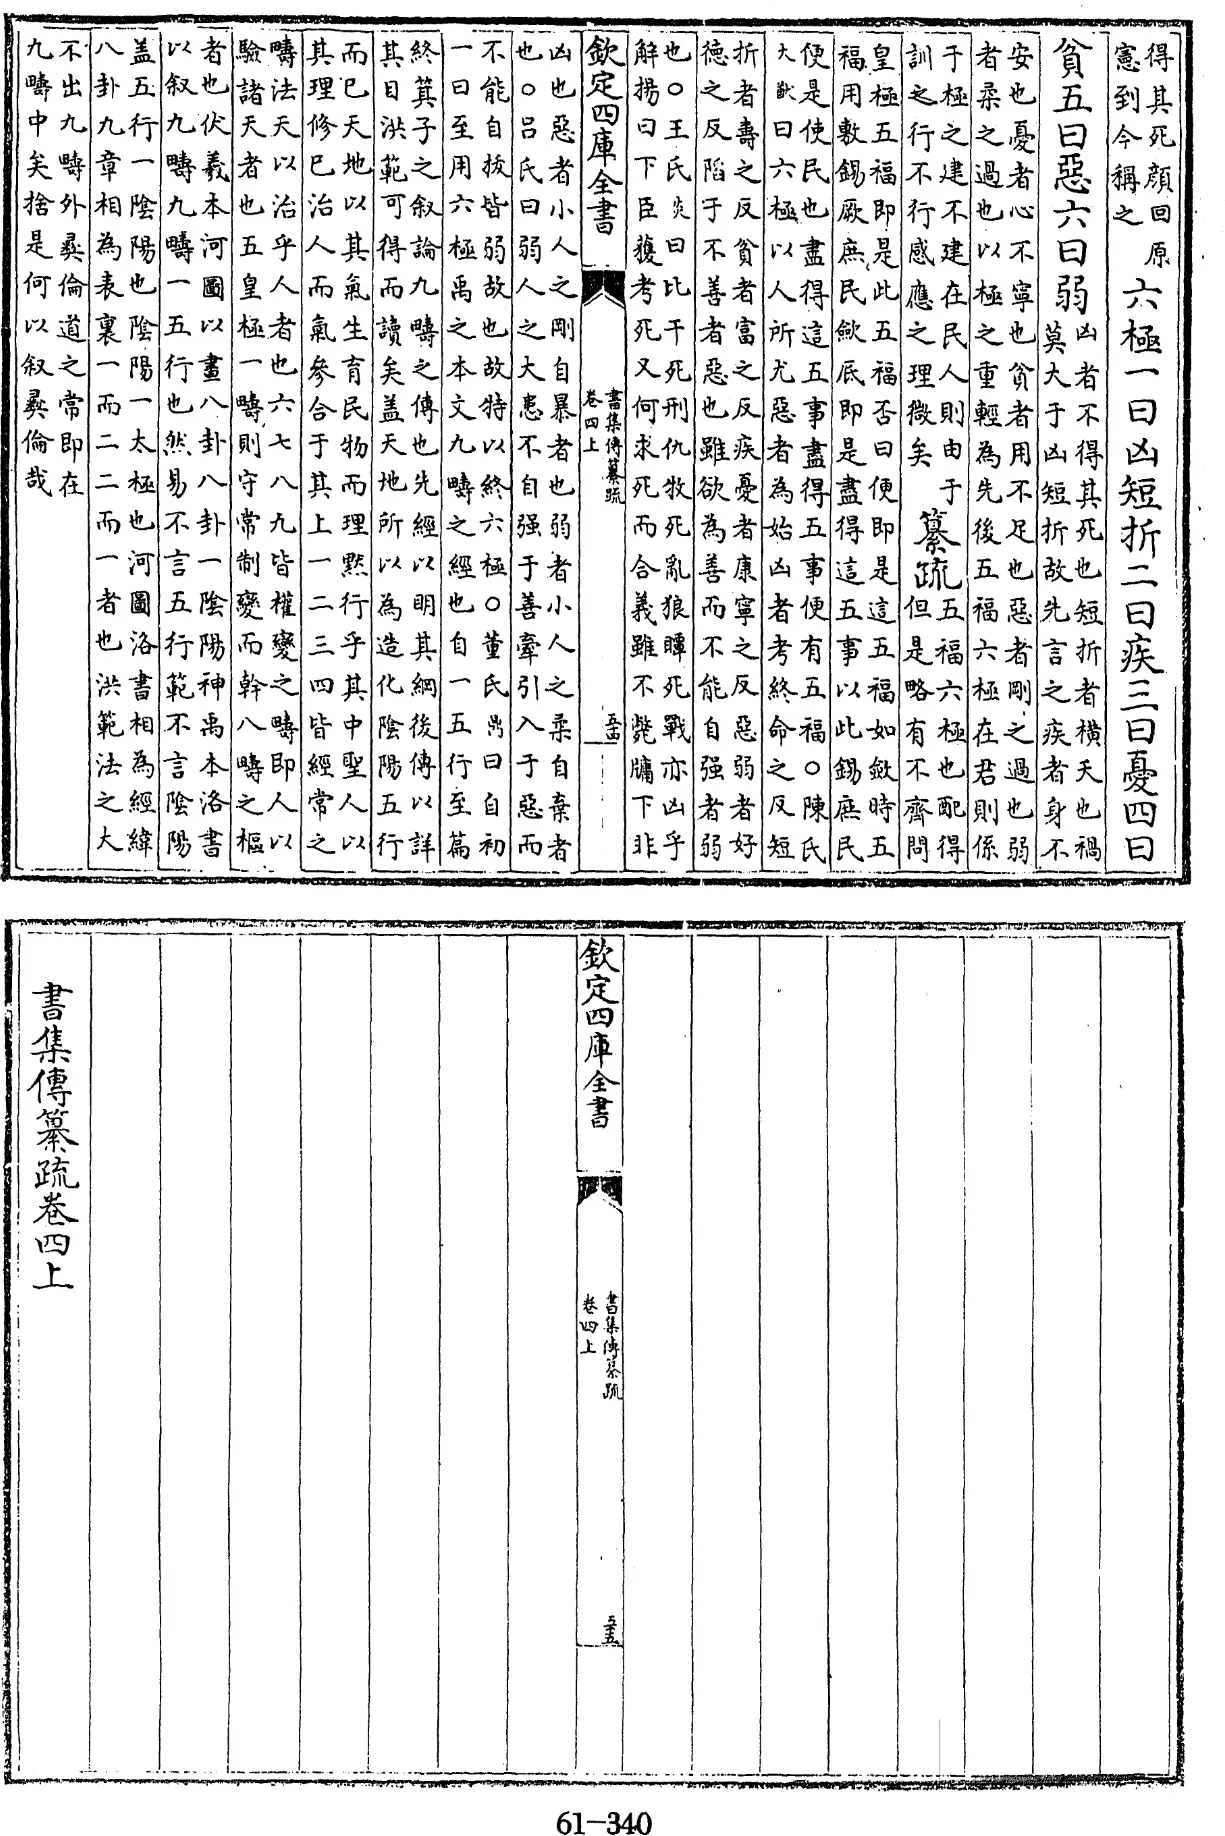 得其死顔回原
憲到今稱之
六極一曰凶短折二曰疾三曰憂四曰
貧五曰惡六曰弱
凶者不得其死也短折者橫夭也禍
莫大于凶短折故先言之疾者身不
安也憂者心不寧也貧者用不足也惡者剛之過也弱
者柔之過也以極之重輕為先後五福六極在君則係
于極之建不建在民人則由于
訓之行不行感應之理微矣
纂疏
五福六極也配得
但是略有不齊問
皇極五福即是此五福否曰便即是這五福如斂時五
福用敷錫厥庶民斂底即是盡得這五事以此錫庶民
便是使民也盡得這五事盡得五事便有五福○陳氏
大猷曰六極以人所尤惡者為始凶者考終命之反短
折者壽之反貧者富之反疾憂者康寧之反惡弱者好
德之反陷于不善者惡也雖欲為善而不能自强者弱
也○王氏炎曰比干死刑仇牧死亂狼瞫死戰亦凶乎
解揚曰下臣獲考死又何求死而合義雖不斃牖下非
欽定四庫全書
書集傳纂疏
卷四上
五十四
凶也惡者小人之剛自暴者也弱者小人之柔自棄者
也○吕氏曰弱人之大患不自强于善牽引入于惡而
不能自拔皆弱故也故特以終六極○董氏鼎曰自初
一曰至用六極禹之本文九疇之經也自一五行至篇
終箕子之叙論九疇之傳也先經以明其綱後傳以詳
其目洪範可得而讀矣盖天地所以為造化陰陽五行
而已天地以其氣生育民物而理默行乎其中聖人以
其理修已治人而氣參合于其上一二三四皆經常之
疇法天以治乎人者也六七八九皆權變之疇即人以
驗諸天者也五皇極一疇則守常制變而幹八疇之樞
者也伏羲本河圖以畫八卦八卦一陰陽神禹本洛書
以叙九疇九疇一五行也然易不言五行範不言陰陽
盖五行一陰陽也陰陽一太極也河圖洛書相為經緯
八卦九章相為表裏一而二二而一者也洪範法之大
不出九疇外彞倫道之常即在
九疇中矣捨是何以叙彞倫哉
欽定四庫全書
書集傳纂疏
卷四上
五十五
書集傳纂疏卷四上
61-340